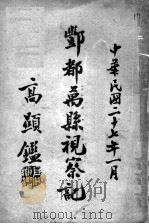 中華民國二十七年一月
酆都萬縣視察記
高顯鑑